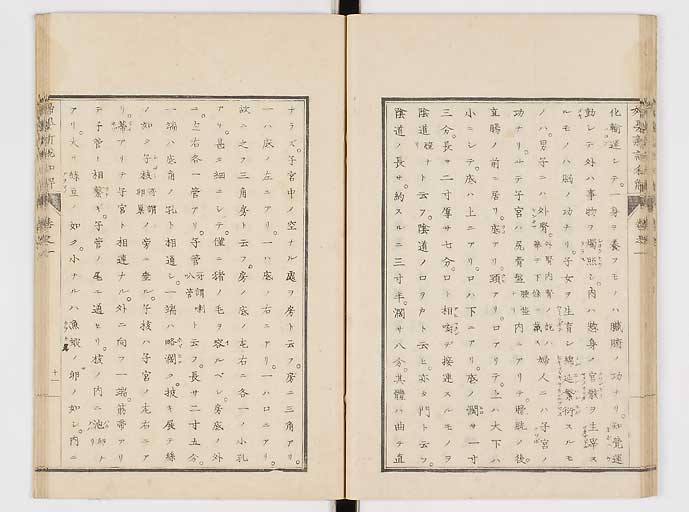 化輸運シテ一身ヲ養フモノハ臓腑ノ功ナリ知覚運
動シテ外ハ事物ヲ燭照シ内ハ数身ノ官骸ヲ主宰ス
ルモノハ脳ノ功ナリ子女ヲ生育シ綿延繁衍スルモ
ノハ男子ニハ外腎外腎内腎ノ説ハ華テ下條ニ載ス婦人ニハ子宮ノ
功ナリ子宮ハ尻骨盤内ニアリテ膀胱ノ後
直腸ノ前ニ居リ底アリ頸アリ口アリテ上ハ大下ハ
小ニシテ底ハ上ニアリ口ハ下ニアリ底ノ濶サ一寸
三分長サ二寸厚サ七分口ト相
接連スルモノヲ
陰道ト云フ陰道ノ口ヲ戸ト云ヒ亦タ門ト云フ
陰道ノ長サ約スルニ三寸半濶サ八分其體ハ曲テ直
ナラズ子宮中ノ空ナル處ヲ房ト云フ房ニ三角アリ
一ハ底ノ左ニアリ一ハ底ノ右ニアリ一ハ口ニアリ
故ニ之ヲ三角房ト云フ房ノ底ノ左右ニ各一ノ小孔
アリ甚タ細ニシテ僅ニ猪ノ毛ヲ容ルベシ房底ノ外
ニ左右各一管アリ子管ト云フ長サ二寸五分
一端ハ底角ノ孔ト相通シ一端ハ略濶ク披キ展テ絲
ノ如ク子核ノ旁ニ垂ル子核ハ子宮ノ左右ニア
リ蒂アリテ子宮ト相連ナル外ニ向フ一端筋帯アリ
テ子管ト相繋ギ子管ノ尾ニ通セリ核ノ内ニ泡
アリ大ハ緑豆ノ如ク小ナルハ魚蝦ノ卵ノ如シ内ニ
十一